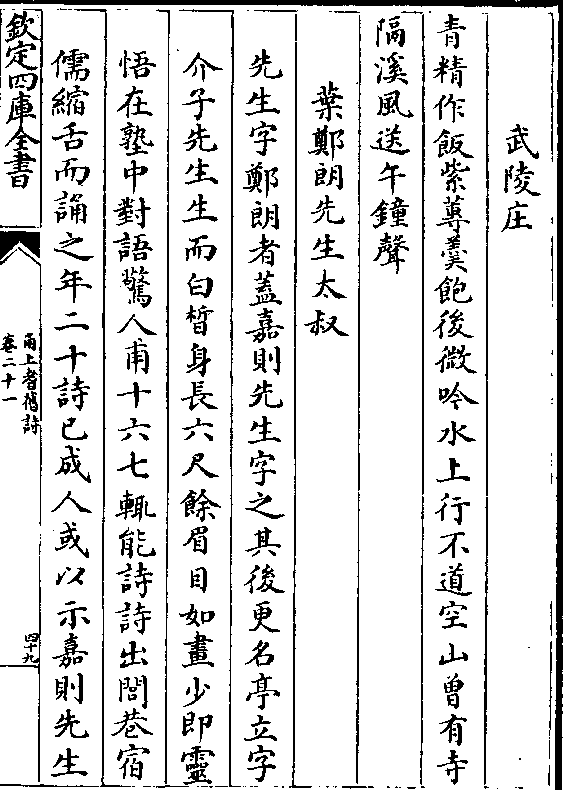 武陵庄
青精作飯紫蓴羮飽後微吟水上行不道空山曾有寺
隔溪風送午鐘聲
葉鄭朗先生太叔
先生字鄭朗者蓋嘉則先生字之其後更名亭立字
介子先生生而白晳身長六尺餘眉目如畫少即靈
悟在塾中對語驚人甫十六七輒能詩詩出閭巷宿
儒縮舌而誦之年二十詩已成人或以示嘉則先生
欽定四庫全書
甬上耆舊詩
卷二十一
四十九